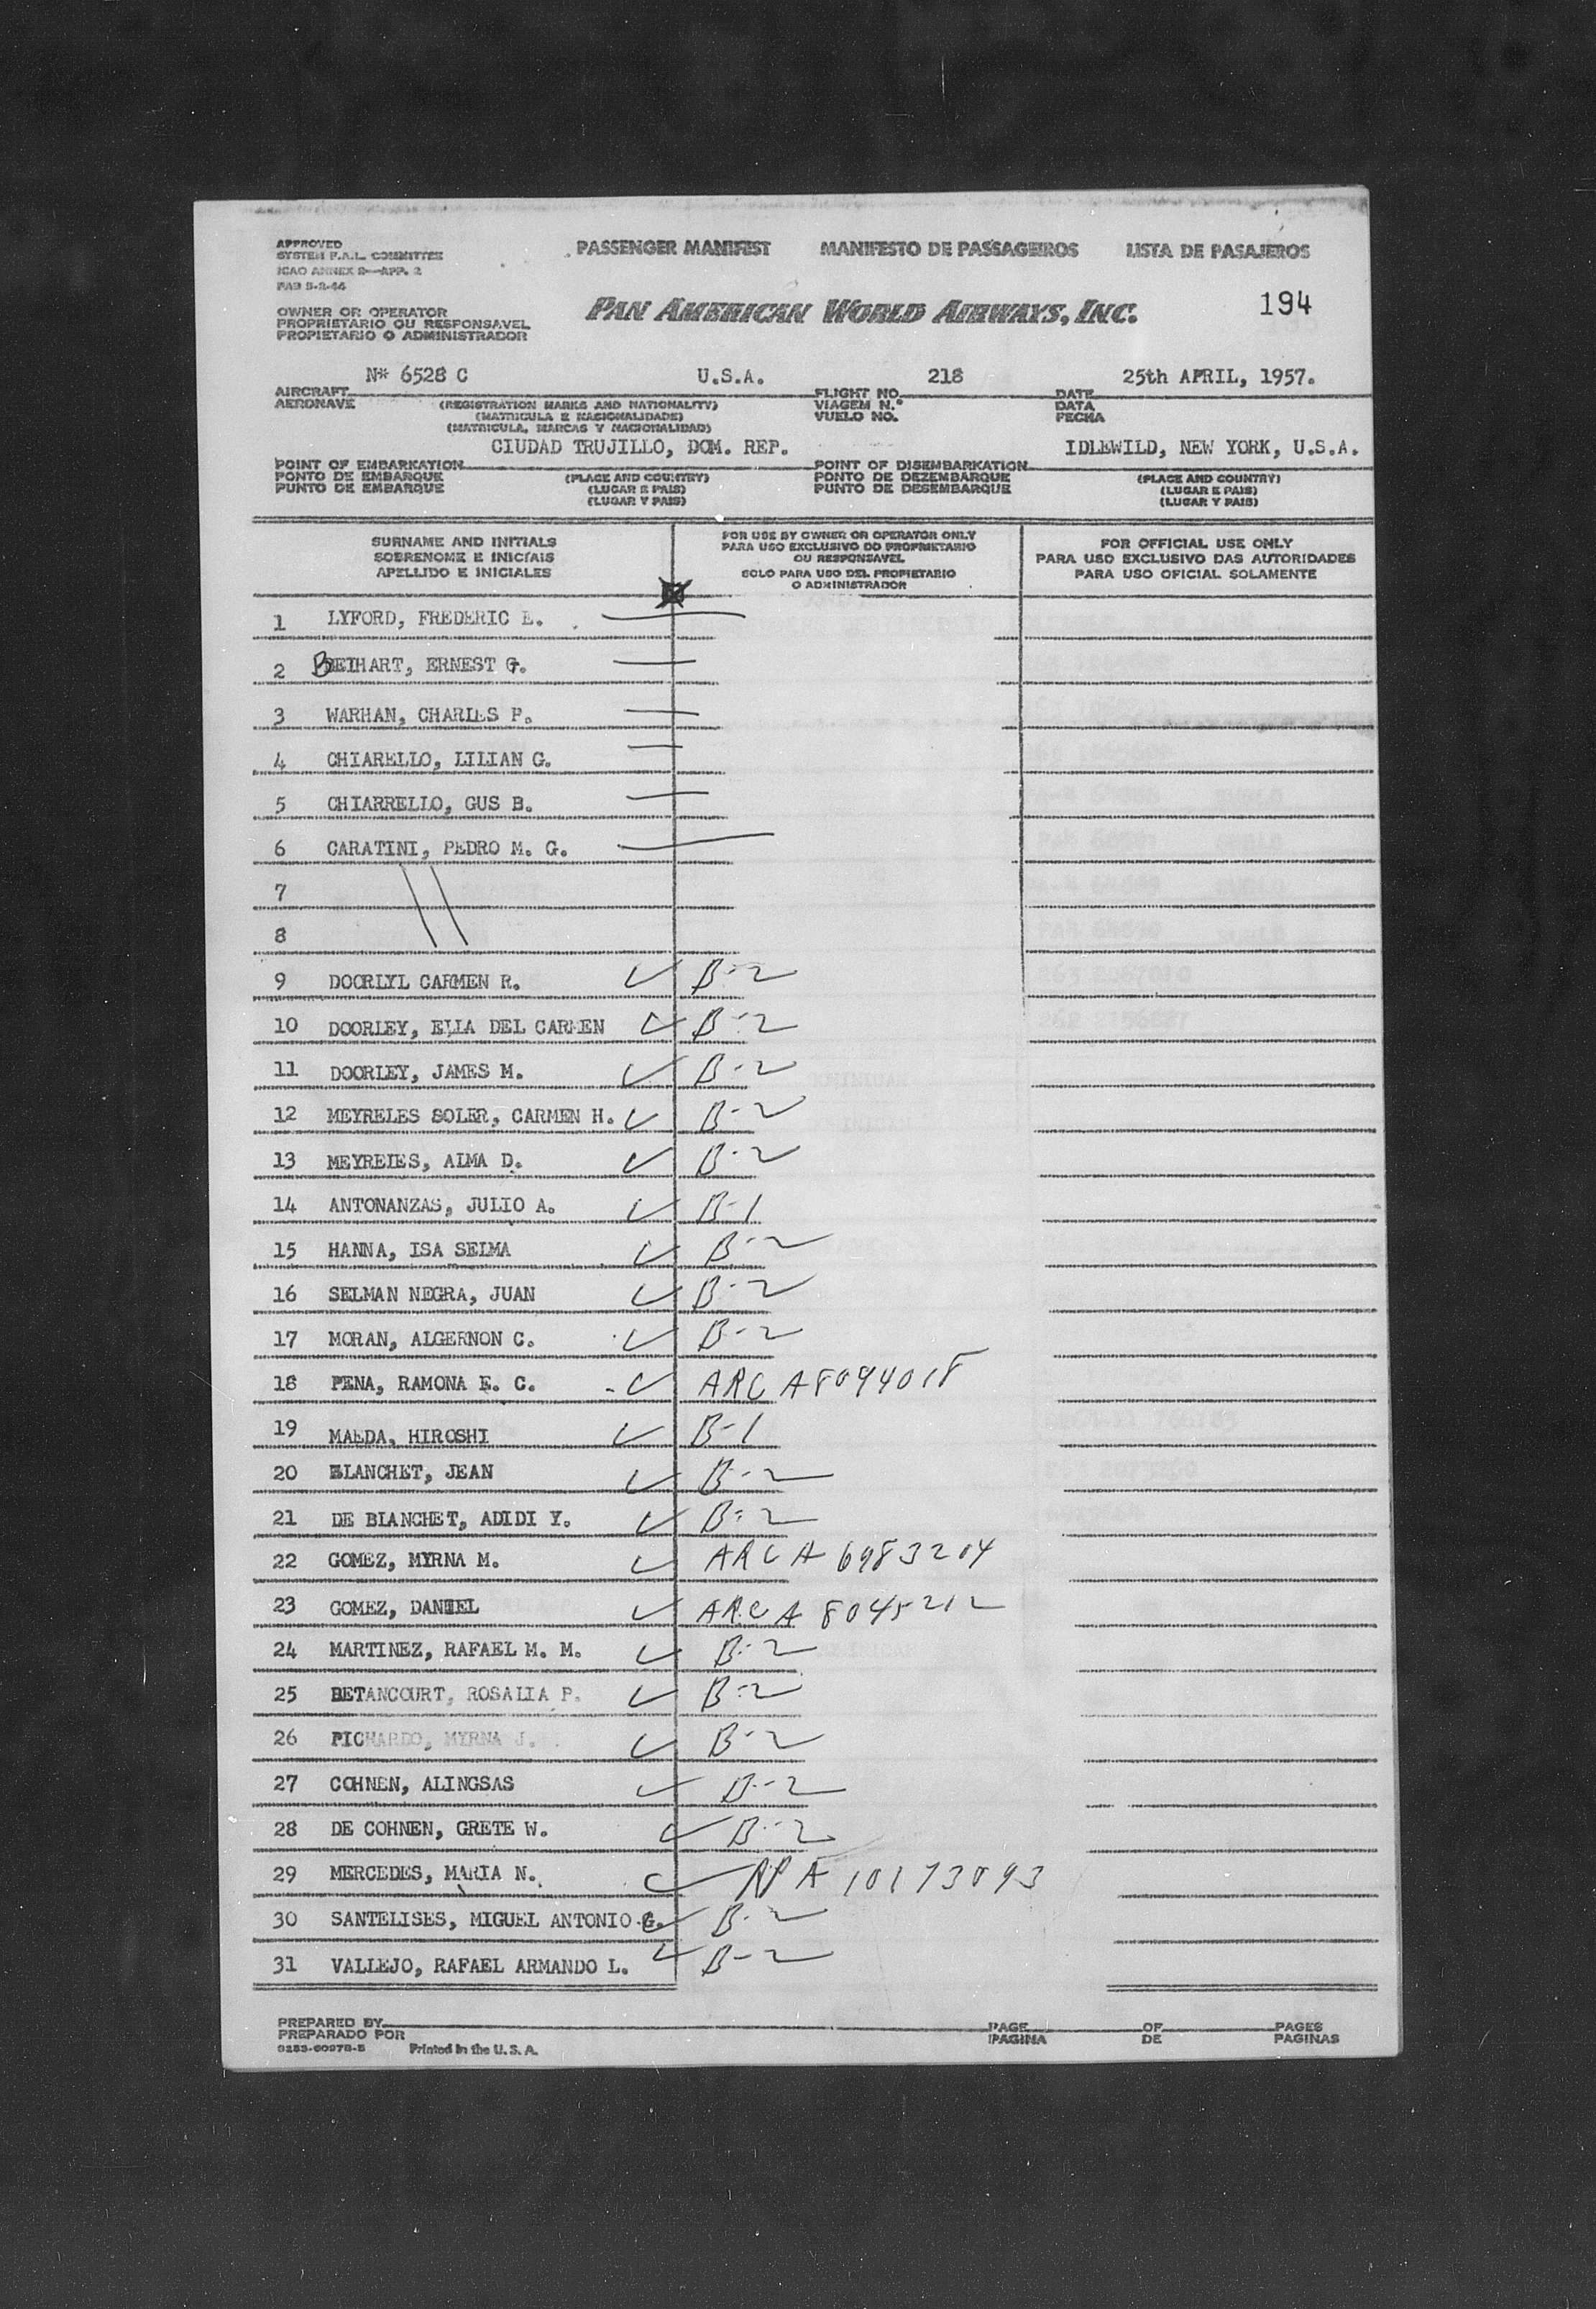 APPROVED
SYSTEM F.A.L. COMMITTEE
ICAO ANNEX 9—APP. 2
FAB 5-2-46
PASSENGER MANIFEST MANIFESTO DE PASSAGEIROS LISTA DE PASAJEROS
OWNER OR OPERATOR
PROPRIETARIO OU RESPONSAVEL
PROPIETARIO O ADMINISTRADOR
PAN AMERICAN WORLD AIRWAYS, INC.
194
N* 6528 C U.S.A. 218 25th APRIL, 1957.
AIRCRAFT
AERONAVE
(REGISTRATION MARKS AND NATIONALITY)
(MATRICULA E NACIONALIDADE)
(MATRICULA, MARCAS Y NACIONALIDAD)
FLIGHT NO.
VIAGEM N.º
VUELO NO.
DATE
DATA
FECHA
CIUDAD TRUJILLO, DOM. REP. IDLEWILD, NEW YORK, U.S.A.
POINT OF EMBARKATION
PONTO DE EMBARQUE
PUNTO DE EMBARQUE
(PLACE AND COUNTRY)
(LUGAR E PAIS)
(LUGAR Y PAIS)
POINT OF DISEMBARKATION
PONTO DE DEZEMBARQUE
PUNTO DE DESEMBARQUE
(PLACE AND COUNTRY)
(LUGAR E PAIS)
(LUGAR Y PAIS)
SURNAME AND INITIALS
SOBRENOME E INICIAIS
APELLIDO E INICIALES
FOR USE BY OWNER OR OPERATOR ONLY
PARA USO EXCLUSIVO DO PROPRIETARIO
OU RESPONSAVEL
SOLO PARA USO DEL PROPIETARIO
O ADMINISTRADOR
FOR OFFICIAL USE ONLY
PARA USO EXCLUSIVO DAS AUTORIDADES
PARA USO OFICIAL SOLAMENTE
1 LYFORD, FREDERIC E.
2 BEIHART, ERNEST G.
3 WARHAN, CHARLES P.
4 CHIARELLO, LILIAN G.
5 CHIARRELLO, GUS B.
6 CARATINI, PEDRO M. G.
7
8
9 DOORLYL CARMEN R. ✓ B-2
10 DOORLEY, ELIA DEL CARMEN ✓ B-2
11 DOORLEY, JAMES M. ✓ B-2
12 MEYRELES SOLER, CARMEN H. ✓ B-2
13 MEYRELES, ALMA D. ✓ B-2
14 ANTONANZAS, JULIO A. ✓ B-1
15 HANNA, ISA SELMA ✓ B-2
16 SELMAN NEGRA, JUAN ✓ B-2
17 MORAN, ALGERNON C. ✓ B-2
18 PENA, RAMONA E. C. ✓ ARC A8094018
19 MAEDA, HIROSHI ✓ B-1
20 BLANCHET, JEAN ✓ B-2
21 DE BLANCHET, ADIDI Y. ✓ B-2
22 GOMEZ, MYRNA M. ✓ ARC A 6983204
23 GOMEZ, DANIEL ✓ ARC A 8045212
24 MARTINEZ, RAFAEL M. M. ✓ B-2
25 BETANCOURT, ROSALIA P. ✓ B-2
26 PICHARDO, MYRNA J. ✓ B-2
27 COHNEN, ALINGSAS ✓ B-2
28 DE COHNEN, GRETE W. ✓ B-2
29 MERCEDES, MARIA N. ✓ A 10173093
30 SANTELISES, MIGUEL ANTONIO G. ✓ B-2
31 VALLEJO, RAFAEL ARMANDO L. ✓ B-2
PREPARED BY
PREPARADO POR
Printed in the U. S. A.
PAGE
PAGINA
OF
DE
PAGES
PAGINAS